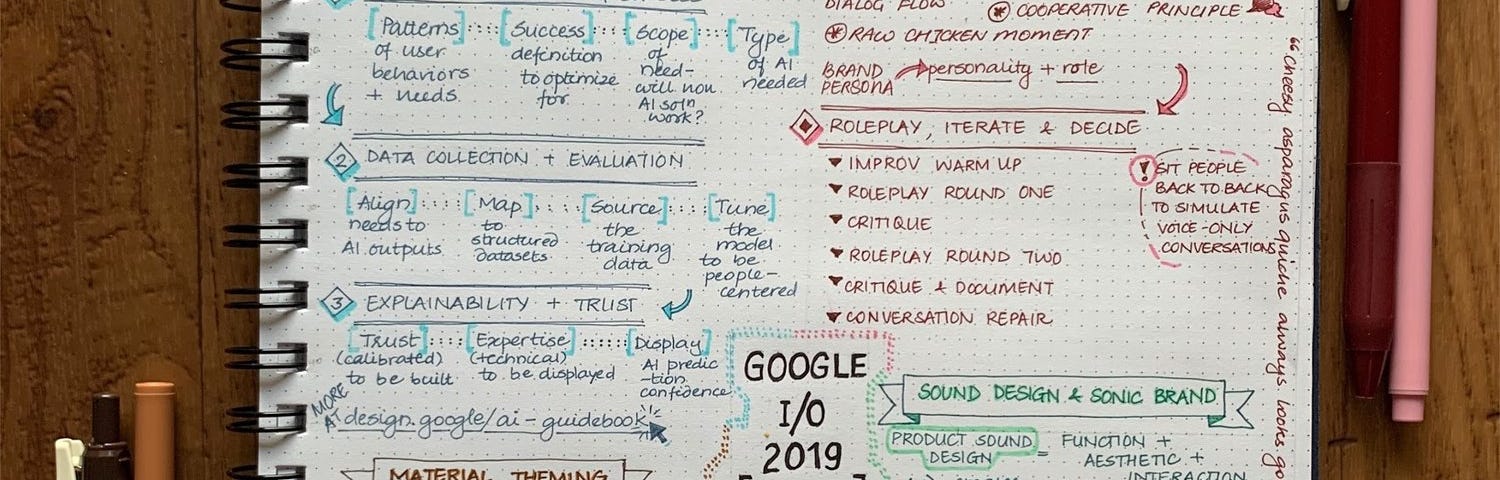 [Patterns] [Success] [Scope] [Type]
of user
behaviors
+ needs
definition
to optimize
for
of
need-
will non
AI soln
work?
of AI
needed
2 DATA COLLECTION + EVALUATION
[Align] [Map] [Source] [Tune]
needs to
AI outputs
to
structured
datasets
the
training
data
the
model
to be
people-
centered
3 EXPLAINABILITY + TRUST
[Trust] [Expertise] [Display]
(calibrated)
to be built
(technical)
to be displayed
AI predic
-tion
confidence
MORE
AT design.google/ai-guidebook
MATERIAL THEMING
DIALOG FLOW
COOPERATIVE PRINCIPLE
RAW CHICKEN MOMENT
BRAND
PERSONA
personality + role
ROLEPLAY, ITERATE & DECIDE
IMPROV WARM UP
ROLEPLAY ROUND ONE
CRITIQUE
ROLEPLAY ROUND TWO
CRITIQUE & DOCUMENT
CONVERSATION REPAIR
! SIT PEOPLE
BACK TO BACK
TO SIMULATE
VOICE-ONLY
CONVERSATIONS
"Cheesy asparagus quiche always looks go
GOOGLE
I/O
2019
SOUND DESIGN & SONIC BRAND
PRODUCT SOUND
DESIGN
= FUNCTION +
AESTHETIC +
INTERACTION